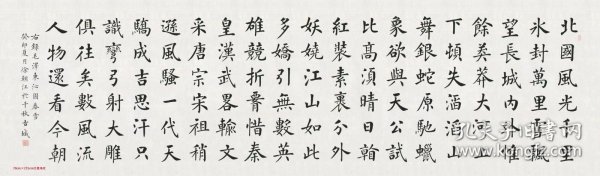 北國風光千里
冰封萬里雪飄
望長城內外惟
餘莽莽大河上
下頓失滔滔山
舞銀蛇原馳蠟
象欲與天公試
比高須晴日看
紅裝素裹分外
妖嬈江山如此
多嬌引無數英
雄競折腰惜秦
皇漢武略輸文
采唐宗宋祖稍
遜風騷一代天
驕成吉思汗只
識彎弓射大雕
俱往矣數風流
人物還看今朝
右錄毛澤東沁園春雪
癸卯夏月徐江於千秋古城
孔夫子旧书网